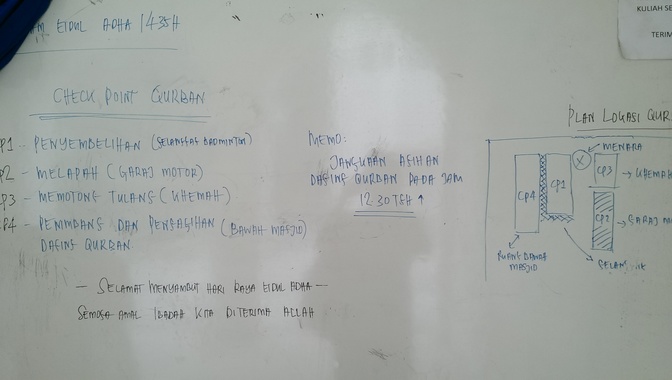 KULIAH SE
TERIM
AM EIDUL ADHA 1435H
CHECK POINT QURBAN
CP1 - PENYEMBELIHAN (GELANGGANG BADMINTON)
CP2 - MELAPAH (GARAJ MOTOR)
CP3 - MEMOTONG TULANG (KHEMAH)
CP4 - PENIMBANG DAN PENGAGIHAN (BAWAH MASJID)
DAGING QURBAN.
MEMO:
JANGKAAN AGIHAN
DAGING QURBAN PADA JAM
12.30 TGH
— SELAMAT MENYAMBUT HARI RAYA EIDUL ADHA —
SEMOGA AMAL IBADAH KITA DITERIMA ALLAH
PLAN LOKASI QUR
MENARA
X
CP4
CP1
CP3
KHEMAH
CP2
GARAJ MO
RUANG BAWAH
MASJID